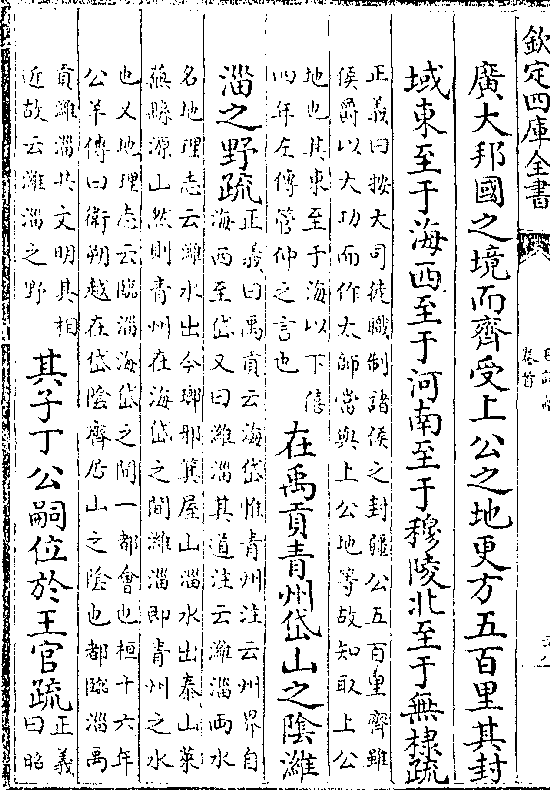 欽定四庫全書
卷首
廣大邦國之境而齊受上公之地更方五百里其封
域東至于海西至于河南至于穆陵北至于無棣疏
正義曰按大司徒職制諸侯之封疆公五百里齊雖
侯爵以大功而作大師當與上公地等故知取上公
地也其東至于海以下僖
四年左傳管仲之言也
在禹貢青州岱山之陰濰
淄之野疏
正義曰禹貢云海岱惟青州注云州界自
海西至岱又曰濰淄其道注云濰淄兩水
名地理志云濰水出今瑯邪箕屋山淄水出泰山萊
蕪縣源山然則青州在海岱之間濰淄即青州之水
也又地理志云臨淄海岱之間一都會也桓十六年
公羊傳曰衛朔越在岱陰齊乃山之陰也都臨淄禹
貢濰淄共文明其相
近故云濰淄之野
其子丁公嗣位於王官疏
正義
曰昭